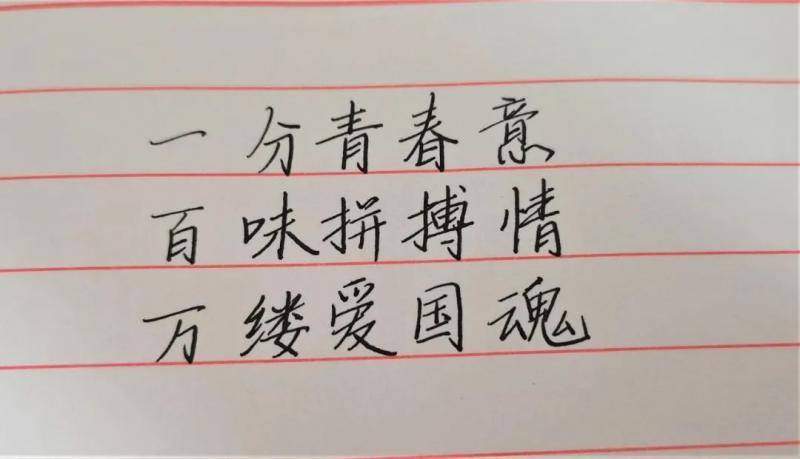 一分青春意
百味拼搏情
万缕爱国魂